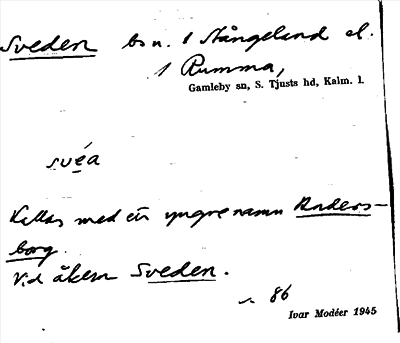 Sveden bs u. 1 Stångeland el.
1 Rumma,
Gamleby sn, S. Tjusts hd, Kalm. l.
svéa
Kallas med ett yngre namn Anders-
borg.
Vid åkern Sveden.
86
Ivar Modéer 1945